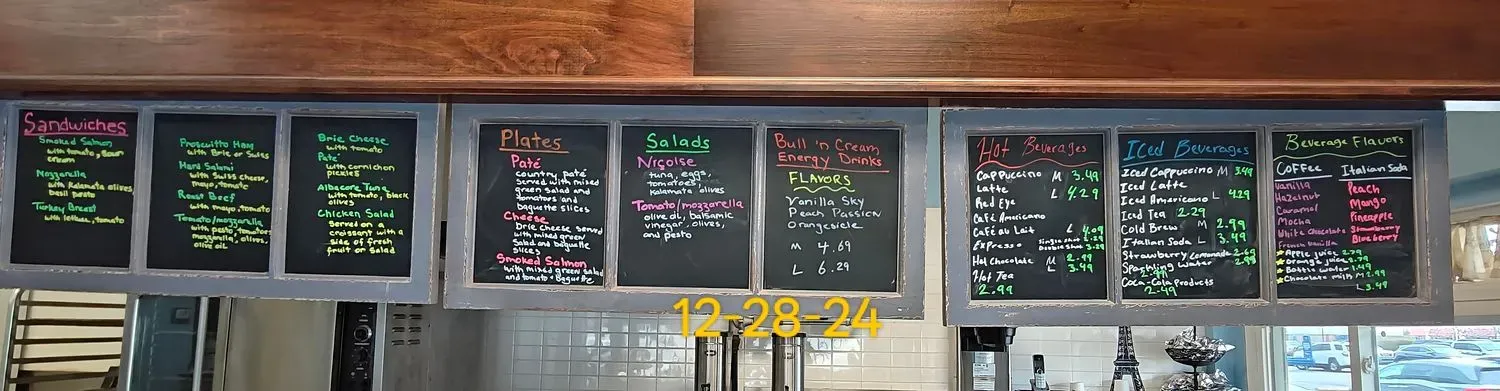 Sandwiches
Smoked Salmon
with tomato, sour
cream
Mozzarella
with kalamata olives
basil pesto
Turkey Breast
with lettuce, tomato
Proscuitto Ham
with Brie or Swiss
Ham Salami
with Swiss cheese,
mayo, tomato
Roast Beef
with mayo, tomato
Tomato/mozzarella
with pesto, tomatoes
mozzarella, olives,
olive oil
Brie Cheese
with tomato
Paté
with cornichon
pickles
Albacore Tuna
with tomato, black
olives
Chicken Salad
Served on a
croissant with a
side of fresh
fruit or salad
Plates
Paté
country paté
served with mixed
green salad and
tomatoes and
baguette slices
Cheese
brie cheese served
with mixed green
salad and baguette
slices
Smoked Salmon
with mixed green salad
and tomato + baguette
Salads
Niçoise
tuna, eggs,
tomatoes,
kalamata olives
Tomato/mozzarella
olive oil, balsamic
vinegar, olives,
and pesto
Bull 'n Cream
Energy Drinks
FLAVORS
Vanilla Sky
Peach Passion
Orangesicle
M 4.69
L 6.29
Hot Beverages
Cappuccino M 3.49
Latte
Red Eye L 4.29
Café Americano
Café au Lait L 4.09
Expresso Single shot
Double shot
Hot Chocolate M 2.99
L 3.49
Hot Tea
2.99
Iced Beverages
Iced Cappuccino M 3.49
Iced Latte
Iced Americano L 4.29
Iced Tea 2.29
Cold Brew M 2.99
Italian Soda L 3.49
Strawberry Lemonade
Sparkling Water
Coca-Cola Products
2.49
Beverage Flavors
Coffee
Vanilla
Hazelnut
Caramel
Mocha
White Chocolate
French Vanilla
Italian Soda
Peach
Mango
Pineapple
Strawberry
Blueberry
Apple juice 2.79
Orange juice 2.79
Bottle water 1.49
Chocolate milk M 2.99
L 3.49
12-28-24